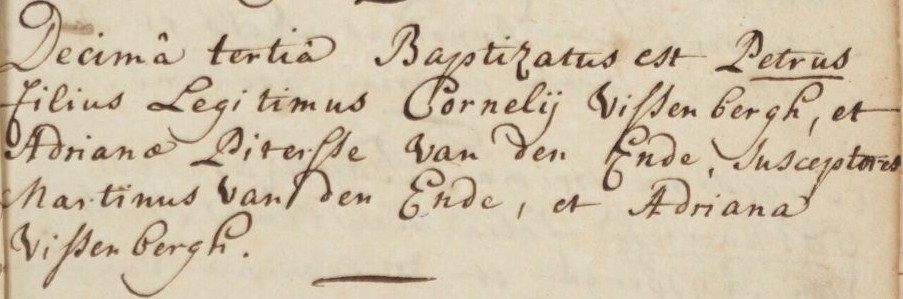 Decimâ tertiâ Baptizatus est Petrus
filius Legitimus Cornelij Vissenbergh, et
Adrianæ Pitersse van den Ende, Susceptores
Martinus van den Ende, et Adriana
Vissenbergh.